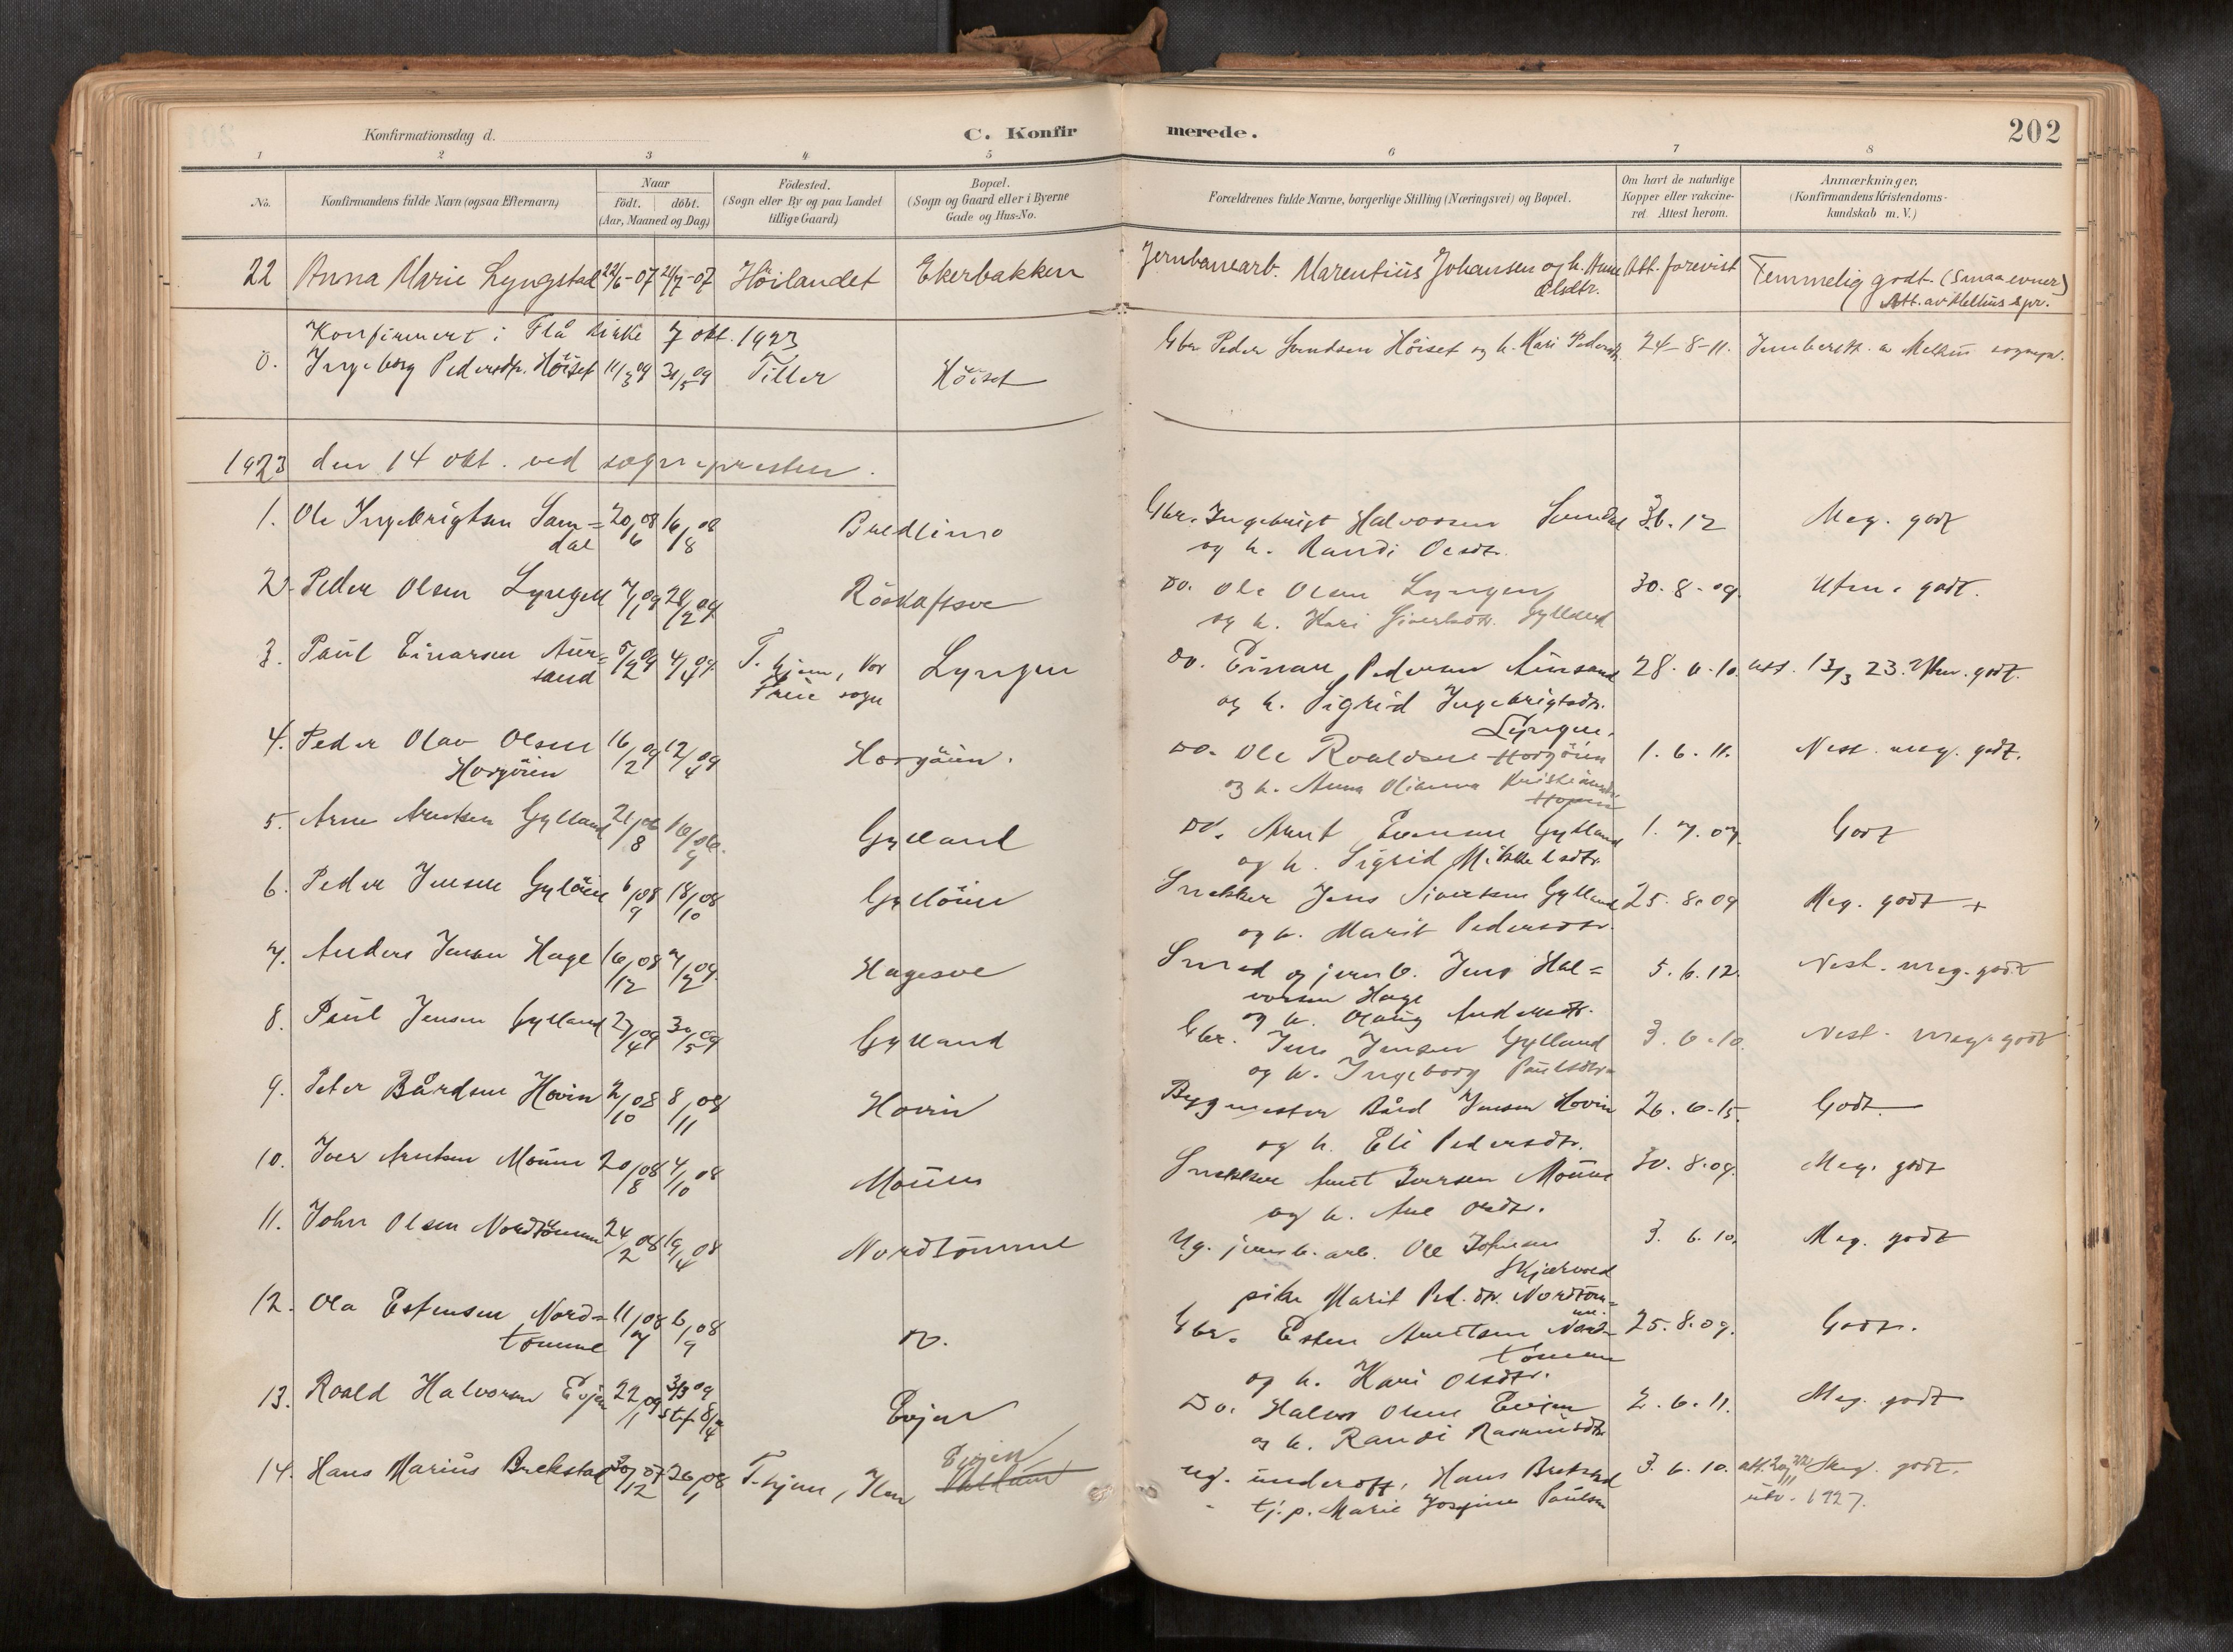 Konfirmationsdag d.
C. Konfirmerede.
202
1 2 3 4 5 6 7 8
No.
Konfirmandens fulde Navn (ogsaa Efternavn)
Naar
født. døbt.
(Aar, Maaned og Dag)
Födested.
(Sogn eller By og paa Landet
tillige Gaard)
Bopæl.
(Sogn og Gaard eller i Byerne
Gade og Hus-No.
Forældrenes fulde Navne, borgerlige Stilling (Næringsvei) og Bopæl.
Om havt de naturlige
Kopper eller vakcine-
ret. Attest herom.
Anmærkninger,
(Konfirmandens Kristendoms-
kundskab m. V.)
22 Anna Marie Lyngstad 22/6-07 21/7-07 Höilandet Ekerbakken Jernbanearb. Marentius Johansen og h. Anne Att. forevist Temmelig godt. (Smaa evner)
Olsdtr. Att. av Melhus spr.
Konfirmert i Flå kirke 7 okt. 1923
0. Ingeborg Pedersdtr. Höiset 11/3 09 31/5 09 Tiller Höiset Gbr Peder Höiset og h. Kari Pedersdtr 24-8-11. av Melhus sognepr.
1923 den 14 okt. ved sognepresten.
1. Ole Ingebrigtsen Sam= 20/6 08 16/8 08 Bredlimo Gbr. Ingebrigt Halvorsen Samdal 3.6.12 Meg. godt
dal og h. Randi Olsdtr.
2. Peder Olsen Lyngen 7/1 09 28/2 09 Röskaftsve Do. Ole Olsen Lyngen 30.8.09. Utm. godt.
og h. Kari Sivertsdtr. Gylland
3. Paul Einarsen Aun= 5/2 09 4/4 09 T.hjem, Vor Lyngen Do. Einar Pedersen Aunsand 28.6.10. att. 13/3 23. Utm. godt.
sand Frue sogn og h. Sigrid Ingebrigtsdtr.
Lyngen.
4. Peder Olav Olsen 16/2 09 12/4 09 Horgöien. Do. Ole Roaldsen Horgöien 1.6.11. Nest. meg. godt.
Horgöien og h. Anna Olianna Kristiansdtr
5. Arne Arntsen Gylland 21/8 06 16/9 06. Gylland Do. Arnt Evensen Gylland 1.7.07. Godt
og h. Sigrid Mikkelsdtr.
6. Peder Jensen Gylöien 6/9 08 18/10 08 Gylöien Snekker Jens Sivertsen Gylland 25.8.09 Meg. godt +
og h. Marit Pedersdtr.
7. Anders Jensen Hage 16/12 08 7/2 09. Hagesve Smed og jernb. Jens Hal= 5.6.12. Nest. meg. godt
vorsen Hage
og h. Olaug Andersdtr.
8. Paul Jensen Gylland 27/4 09 30/5 09 Gylland Gbr. Jens Jensen Gylland 3.6.10. Nest. meg. godt
og h. Ingeborg Paulsdtr.
9. Peter Bårdsen Hovin 2/10 08 8/11 08 Hovin Bygmester Bård Jensen Hovin 26.6.15. Godt
og h. Eli Pedersdtr.
10. Iver Arntsen Moum 20/8 08 4/10 08 Moum Snekker Arnt Iversen Moum 30.8.09. Meg. godt
og h. Ane Olsdtr.
11. John Olsen Nordtömme 24/2 08 19/4 08 Nordtömme Ug. jernb. arb. Ole Johnsen 3.6.10. Meg. godt
Skjærvold
pike Marit Ped.dtr. Nordtöm=
me.
12. Ola Estensen Nord= 11/7 08 6/9 08 Do. Gbr. Esten Arntsen Nord- 25.8.09. Godt.
tömme tömme
og h. Kari Olsdtr.
13. Roald Halvorsen Evjen 22/1 09 3/3 09 Evjen Do. Halvor Olsen Evjen 2.6.11. Meg. godt
stf. 8/4 og h. Randi Rasmusdtr
14. Hans Marius Brekstad 30/12 07 26/1 08 T.hjem, Ilen Evjen Ug. underoff. Hans Brekstad 3.6.10. att. 20/11 22 Meg. godt.
tj. p. Marie Josefine Paulsen utv. 1927.